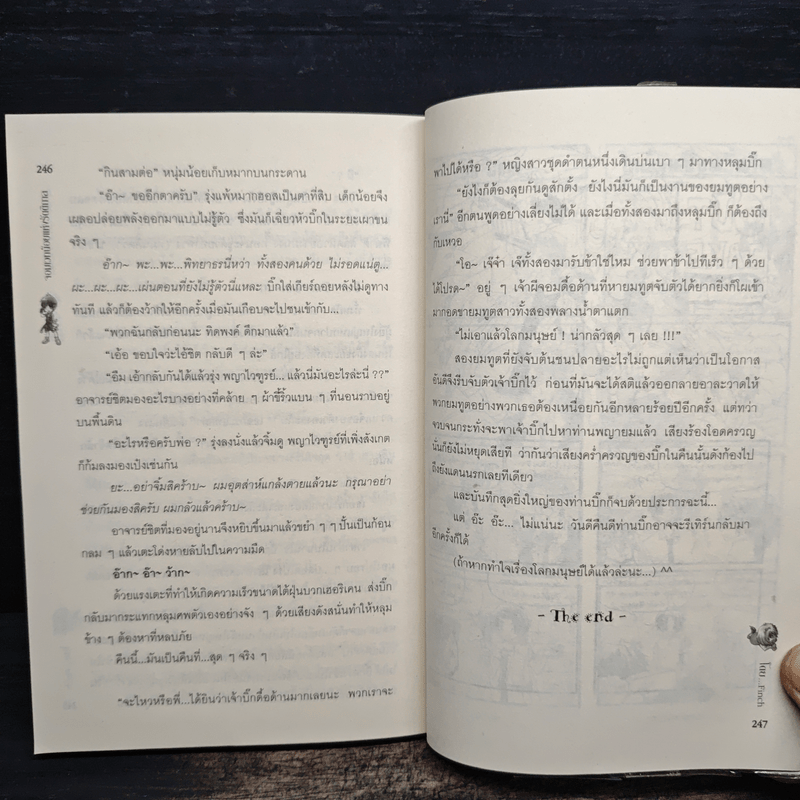 246
"กินสามต่อ" หนุ่มน้อยเก็บหมากบนกระดาน
"อ๊า~ ขออีกตาครับ" รุ่งแพ้หมากฮอสเป็นตาที่สิบ เด็กน้อยจึง
เผลอปล่อยพลังออกมาแบบไม่รู้ตัว ซึ่งมันก็เฉี่ยวหัวบิ๊กในระยะเผาขน
จริง ๆ
อ๊าก~ พะ...พะ...พิทยาธรนี่หว่า ทั้งสองคนด้วย ไม่รอดแน่ดู...
ผะ...ผะ...ผะ...เผ่นตอนที่ยังไม่รู้ตัวนี่แหละ บิ๊กใส่เกียร์ถอยหลังไม่ดูทาง
ทันที แล้วก็ต้องว้ากให้อีกครั้งเมื่อมันเกือบจะไปชนเข้ากับ...
"พวกฉันกลับก่อนนะ ทิดพงค์ ดึกมาแล้ว"
"เอ้อ ขอบใจว่ะไอ้ชิต กลับดี ๆ ล่ะ"
"อืม เอ้ากลับกันได้แล้วรุ่ง พญาไวฑูรย์... แล้วนี่มันอะไรล่ะนี่ ??"
อาจารย์ชิตมองอะไรบางอย่างที่คล้าย ๆ ผ้าขี้ริ้วแบน ๆ ที่นอนราบอยู่
บนพื้นดิน
"อะไรหรือครับพ่อ ?" รุ่งลงนั่งแล้วจิ้มดู พญาไวฑูรย์ที่เพิ่งสังเกต
ก็ก้มลงมองเป๋งเช่นกัน
ยะ...อย่าจิ้มสิคร้าบ~ ผมอุตส่าห์แกล้งตายแล้วนะ กรุณาอย่า
ช่วยกันมองสิครับ ผมกลัวแล้วคร้าบ~
อาจารย์ชิตที่มองอยู่นานจึงหยิบขึ้นมาแล้วขยำ ๆ ๆ ปั้นเป็นก้อน
กลม ๆ แล้วเตะโด่งหายลับไปในความมืด
อ๊าก~ อ๊า~ ว้าก~
ด้วยแรงเตะที่ทำให้เกิดความเร็วขนาดไต้ฝุ่นบวกเฮอริเคน ส่งบิ๊ก
กลับมากระแทกหลุมศพตัวเองอย่างจัง ๆ ด้วยเสียงดังสนั่นทำให้หลุม
ข้าง ๆ ต้องหาที่หลบภัย
คืนนี้...มันเป็นคืนที่...สุด ๆ จริง ๆ
"จะไหวหรือพี่...ได้ยินว่าเจ้าบิ๊กดื้อด้านมากเลยนะ พวกเราจะ
พาไปได้หรือ ?" หญิงสาวชุดดำตนหนึ่งเดินบ่นเบา ๆ มาทางหลุมบิ๊ก
"ยังไงก็ต้องลุยกันดูสักตั้ง ยังไงนี่มันก็เป็นงานของยมทูตอย่าง
เรานี่" อีกตนพูดอย่างเลี่ยงไม่ได้ และเมื่อทั้งสองมาถึงหลุมบิ๊ก ก็ต้องถึง
กับเหวอ
"ใอ~ เจ๊จ๋า เจ๊ทั้งสองมารับช้าใช่ไหม ช่วยพาข้าไปทีเร็ว ๆ ด้วย
ได้โปรด~" อยู่ ๆ เจ้าผีจอมดื้อด้านที่หายมทูตจับตัวได้ยากยิ่งก็โผเข้า
มากอดขายมทูตสาวทั้งสองพลางน้ำตาแตก
"ไม่เอาแล้วโลกมนุษย์ ! น่ากลัวสุด ๆ เลย !!!"
สองยมทูตที่ยังจับต้นชนปลายอะไรไม่ถูกแต่เห็นว่าเป็นโอกาส
อันดีจึงรีบจับตัวเจ้าบิ๊กไว้ ก่อนที่มันจะได้สติแล้วออกลายอาละวาดให้
พวกยมทูตอย่างพวกเธอต้องเหนื่อยกันอีกหลายร้อยปีอีกครั้ง แต่ทว่า
จวบจนกระทั่งจะพาเจ้าบิ๊กไปหาท่านพญายมแล้ว เสียงร้องโอดครวญ
นั่นก็ยังไม่หยุดเสียที ว่ากันว่าเสียงคร่ำครวญของบิ๊กในคืนนั้นดังก้องไป
ถึงยังแดนนรกเลยทีเดียว
และบันทึกสุดยิ่งใหญ่ของท่านบิ๊กก็จบด้วยประการฉะนี้...
แต่ อ๊ะ อ๊ะ... ไม่แน่นะ วันดีคืนดีท่านบิ๊กอาจจะรีเทิร์นกลับมา
อีกครั้งก็ได้
(ถ้าหากทำใจเรื่องโลกมนุษย์ได้แล้วล่ะนะ...) ^^
- The end -
โดย...Finch
247